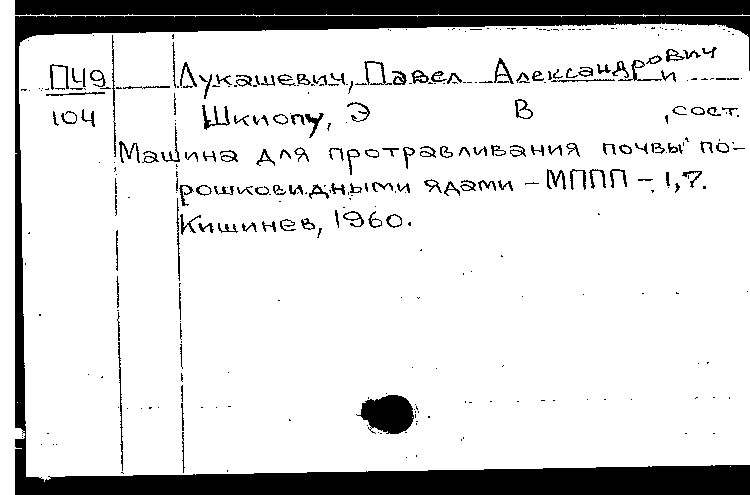 П49 Лукашевич, Павел Александрович и
104 Шкиопу, Э В , сост.
Машина для протравливания почвы по-
рошковидными ядами – МППП – 1,7.
Кишинев, 1960.